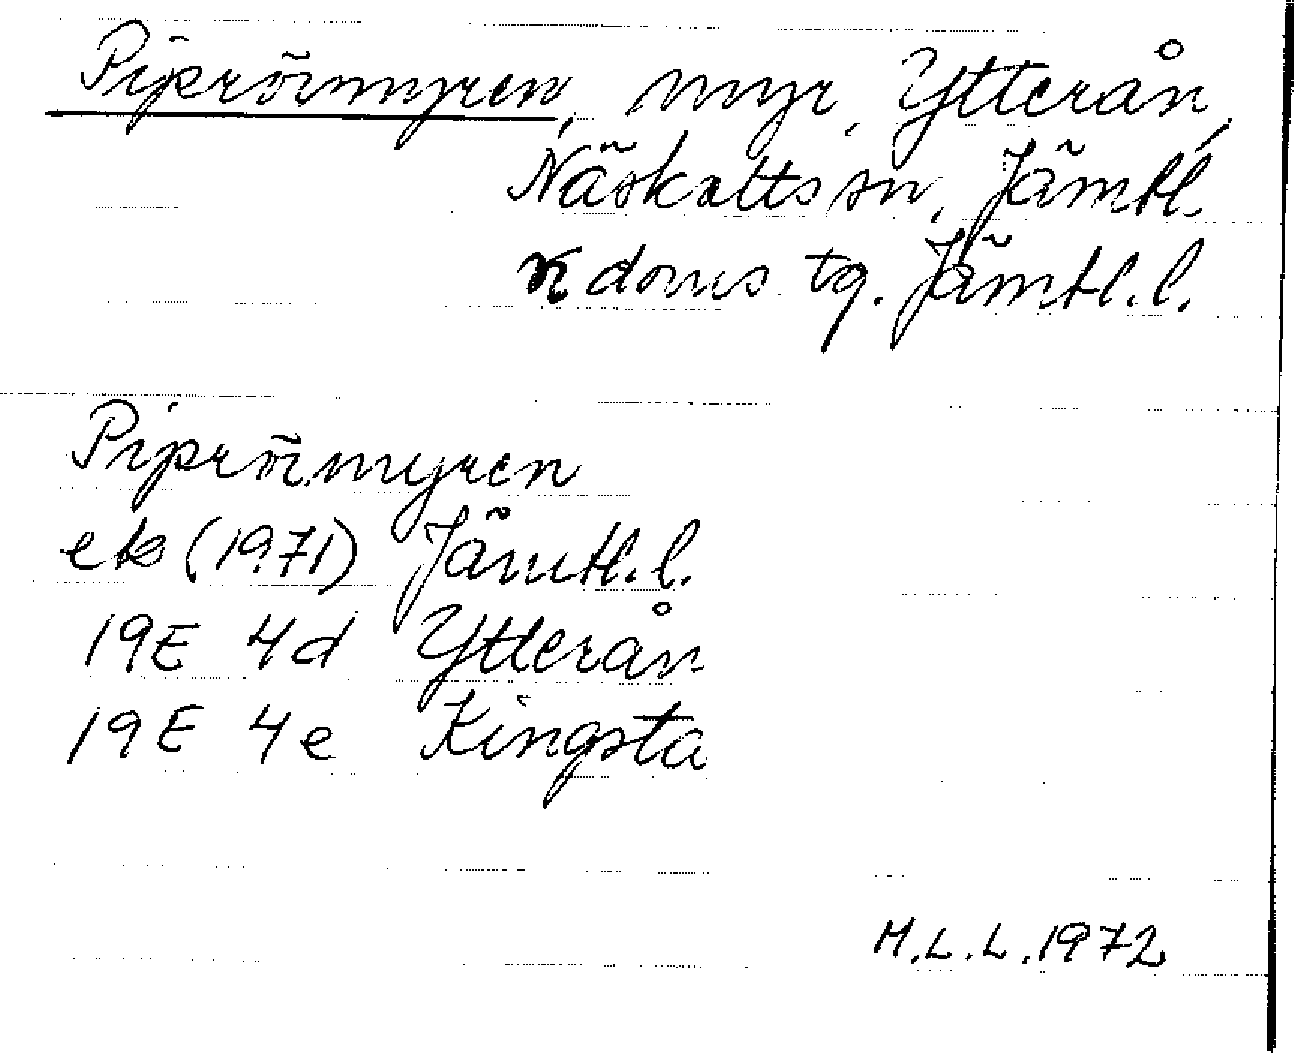 Piprörmyren, myr, Ytterån,
Näskotts sn, Jämtl.
n doms tg. Jämtl. l.
Piprörmyren
ek (1971) Jämtl. l.
19E 4d Ytterån
19E 4e Kingsta
M.L.L. 1972